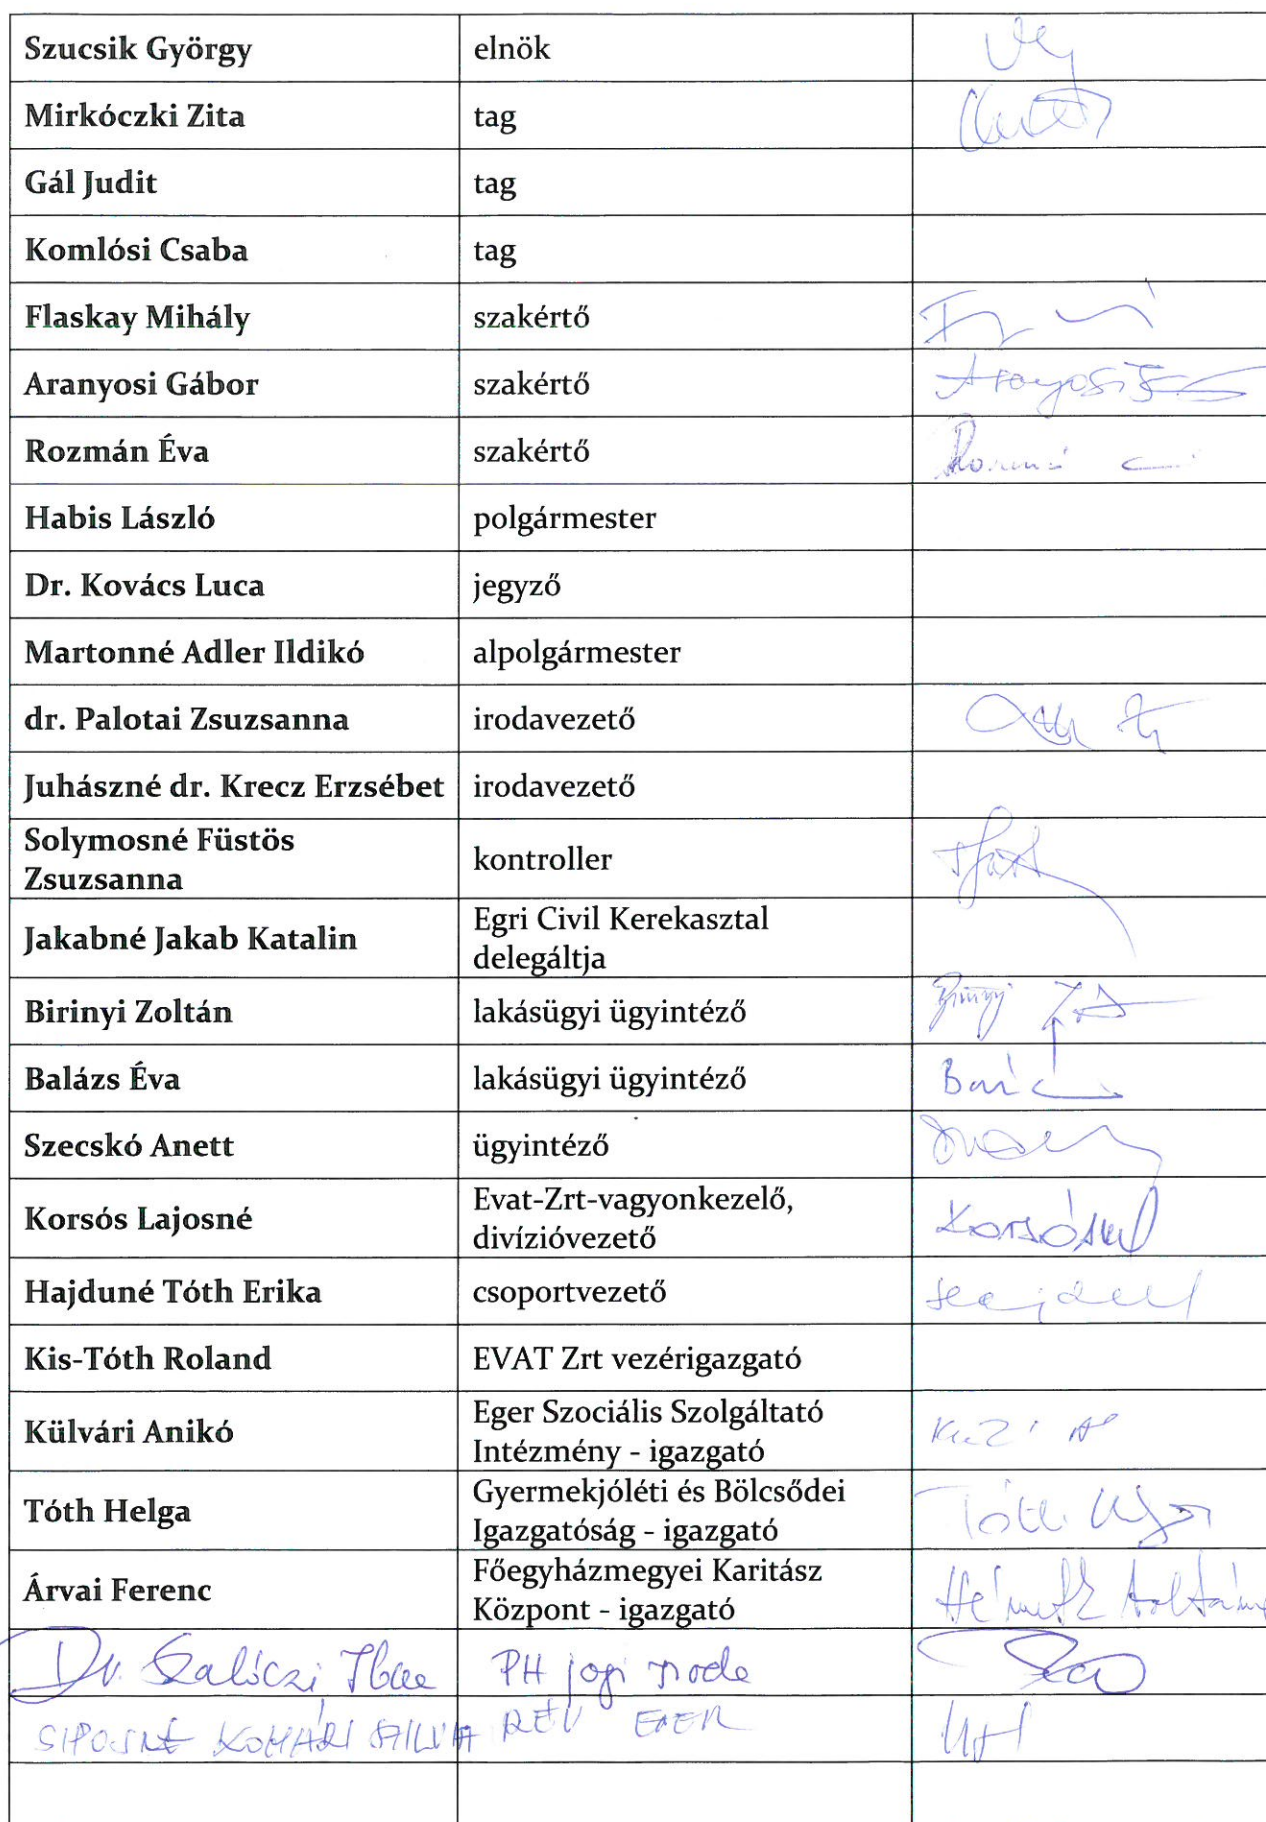 Szucsik György elnök
Mirkóczki Zita tag
Gál Judit tag
Komlósi Csaba tag
Flaskay Mihály szakértő
Aranyosi Gábor szakértő
Rozmán Éva szakértő
Habis László polgármester
Dr. Kovács Luca jegyző
Martonné Adler Ildikó alpolgármester
dr. Palotai Zsuzsanna irodavezető
Juhászné dr. Krecz Erzsébet irodavezető
Solymosné Füstös
Zsuzsanna
kontroller
Jakabné Jakab Katalin
Egri Civil Kerekasztal
delegáltja
Birinyi Zoltán lakásügyi ügyintéző
Balázs Éva lakásügyi ügyintéző
Szecskó Anett ügyintéző
Korsós Lajosné
Evat-Zrt-vagyonkezelő,
divízióvezető
Korsósné
Hajduné Tóth Erika csoportvezető
Kis-Tóth Roland EVAT Zrt vezérigazgató
Külvári Anikó
Eger Szociális Szolgáltató
Intézmény - igazgató
Tóth Helga
Gyermekjóléti és Bölcsődei
Igazgatóság - igazgató
Tóth
Árvai Ferenc
Főegyházmegyei Karitász
Központ - igazgató
Dr. PH jogi iroda
SIPOSNÉ RÉV EGER